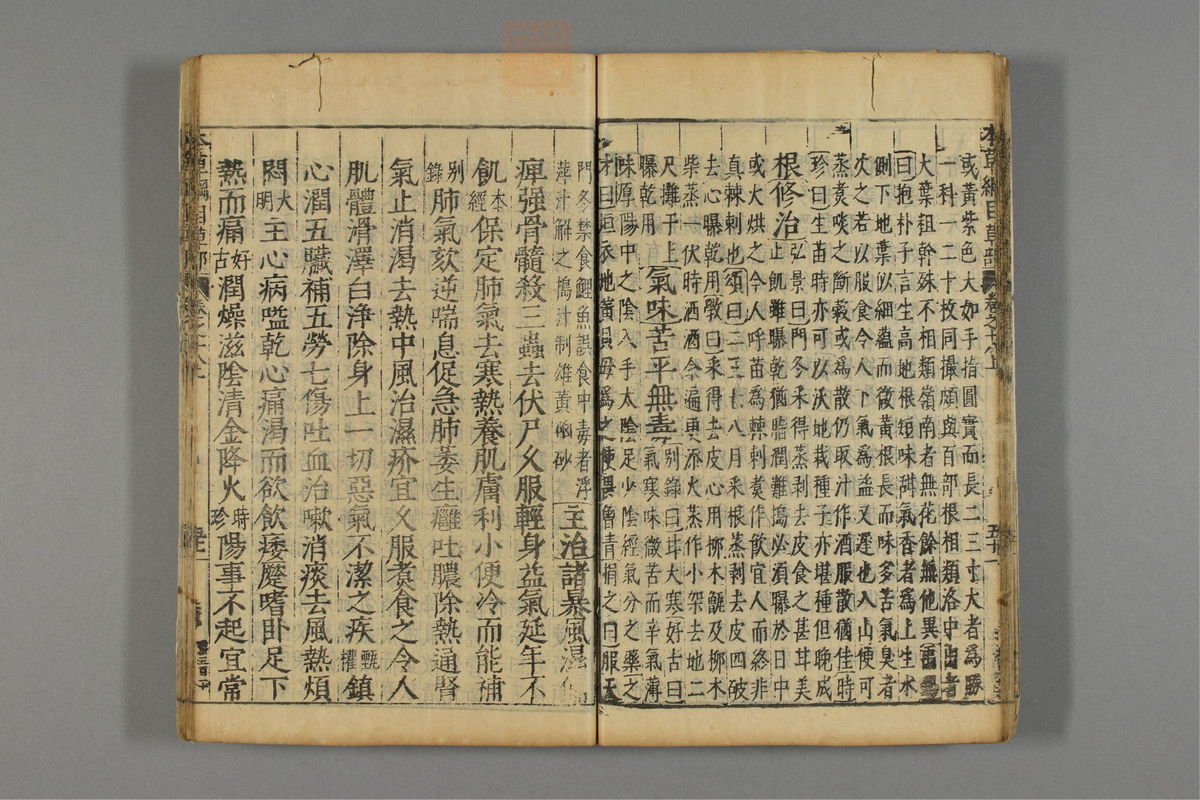 本草綱目草部
或黃紫色大如手指圓實而長二三寸大者為勝
一科一二十枚同撮頗與百部根相類洛中出者
大葉粗幹殊不相類嶺南者無花餘無他異
曰抱朴子言生高地根短味甜氣香者為上生水
側下地葉似細蘊而微黃根長而味多苦氣臭者
次之若以服食令人下氣為益又遲也入山便可
蒸煑啖之斷穀或為散仍取汁作酒服散猶佳時
珍曰生苗時亦可以沃地栽種子亦堪種但晚成
根修治弘景曰門冬采得蒸剥去皮食之甚甘美
止飢雖曝乾猶脂潤難搗必須曝於日中
或火烘之今人呼苗為棘刺煑作飲宜人而終非
真棘刺也頌曰二三七八月采根蒸剥去皮四破
去心曝乾用斅曰采得去皮心用柳木甑及柳木
柴蒸一伏時洒酒令遍更添火蒸作小架去地二
尺攤于上曝乾用
氣味苦平無毒别錄曰甘大寒好古曰
氣寒味微苦而辛氣薄
味厚陽中之陰入手太陰足少陰經氣分之藥之
才曰垣衣地黃貝母為之使畏曾青損之曰服天
門冬禁食鯉魚誤食中毒者浮
萍汁解之搗汁制雄黃硇砂
主治諸暴風濕
痺强骨髓殺三蟲去伏尸久服輕身益氣延年不
飢本經保定肺氣去寒熱養肌膚利小便冷而能補
别錄肺氣欬逆喘息促急肺萎生癰吐膿除熱通腎
氣止消渴去熱中風治濕疥宜久服煑食之令人
肌體滑澤白淨除身上一切惡氣不潔之疾甄權鎮
心潤五臟補五勞七傷吐血治嗽消痰去風熱煩
悶大明主心病嗌乾心痛渴而欲飲痿躄嗜卧足下
熱而痛好古潤燥滋陰清金降火時珍陽事不起宜常